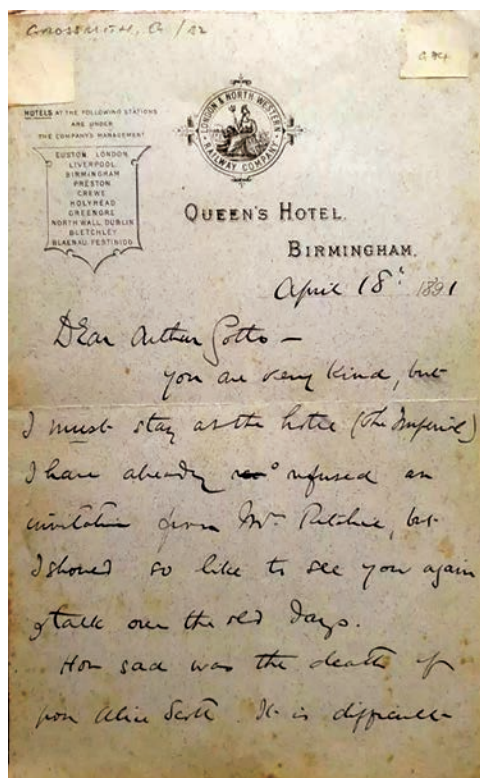 GROSSMITH, G /22
G #4
HOTELS AT THE FOLLOWING STATIONS
ARE UNDER
THE COMPANY'S MANAGEMENT
EUSTON LONDON
LIVERPOOL
BIRMINGHAM
PRESTON
CREWE
HOLYHEAD
GREENORE
NORTH WALL DUBLIN
BLETCHLEY
BLAENAU FESTINIOG
LONDON & NORTH WESTERN
RAILWAY COMPANY
QUEEN'S HOTEL.
BIRMINGHAM.
April 18 1891
Dear Arthur Gotto –
you are very kind, but
I must stay at the hotel (the Imperial)
I have already refused an
invitation from Mr. Ritchie, but
I should so like to see you again
& talk over the old days.
How sad was the death of
poor Alice Scott. It is difficult